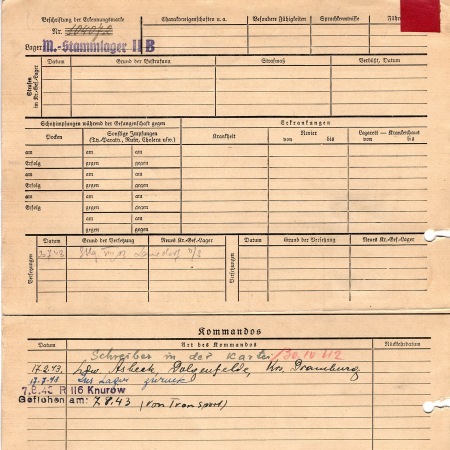 Beschriftung der Erkennungsmarke
Nr.
Lager: M.-Stammlager II B
Charaktereigenschaften u. a.
Besondere Fähigkeiten
Sprachkenntnisse
Führ
Strafen im Kr.-Gef.-Lager
Datum Grund der Bestrafung Strafmaß Verbüßt, Datum
Schutzimpfungen während der Gefangenschaft gegen
Erkrankungen
Pocken
Sonstige Impfungen
(Ty.-Paraty., Ruhr, Cholera usw.)
Krankheit
Revier
von bis
Lazarett — Krankenhaus
von bis
am am am
Erfolg gegen gegen
am am am
Erfolg gegen gegen
am am am
Erfolg gegen gegen
am am
gegen gegen
Versetzungen
Datum Grund der Versetzung Neues Kr.-Gef.-Lager
Versetzungen
Datum Grund der Versetzung Neues Kr.-Gef.-Lager
Kommandos
Datum Art des Kommandos Rückkehrdatum
Schreiber in der Kartei
17.2.43. Ldw. Dolgenfelde, Krs. Dramburg
ins Lager zurück
7.8.43 R 116 Knurow
Geflohen am: 7.8.43 (von Transport)